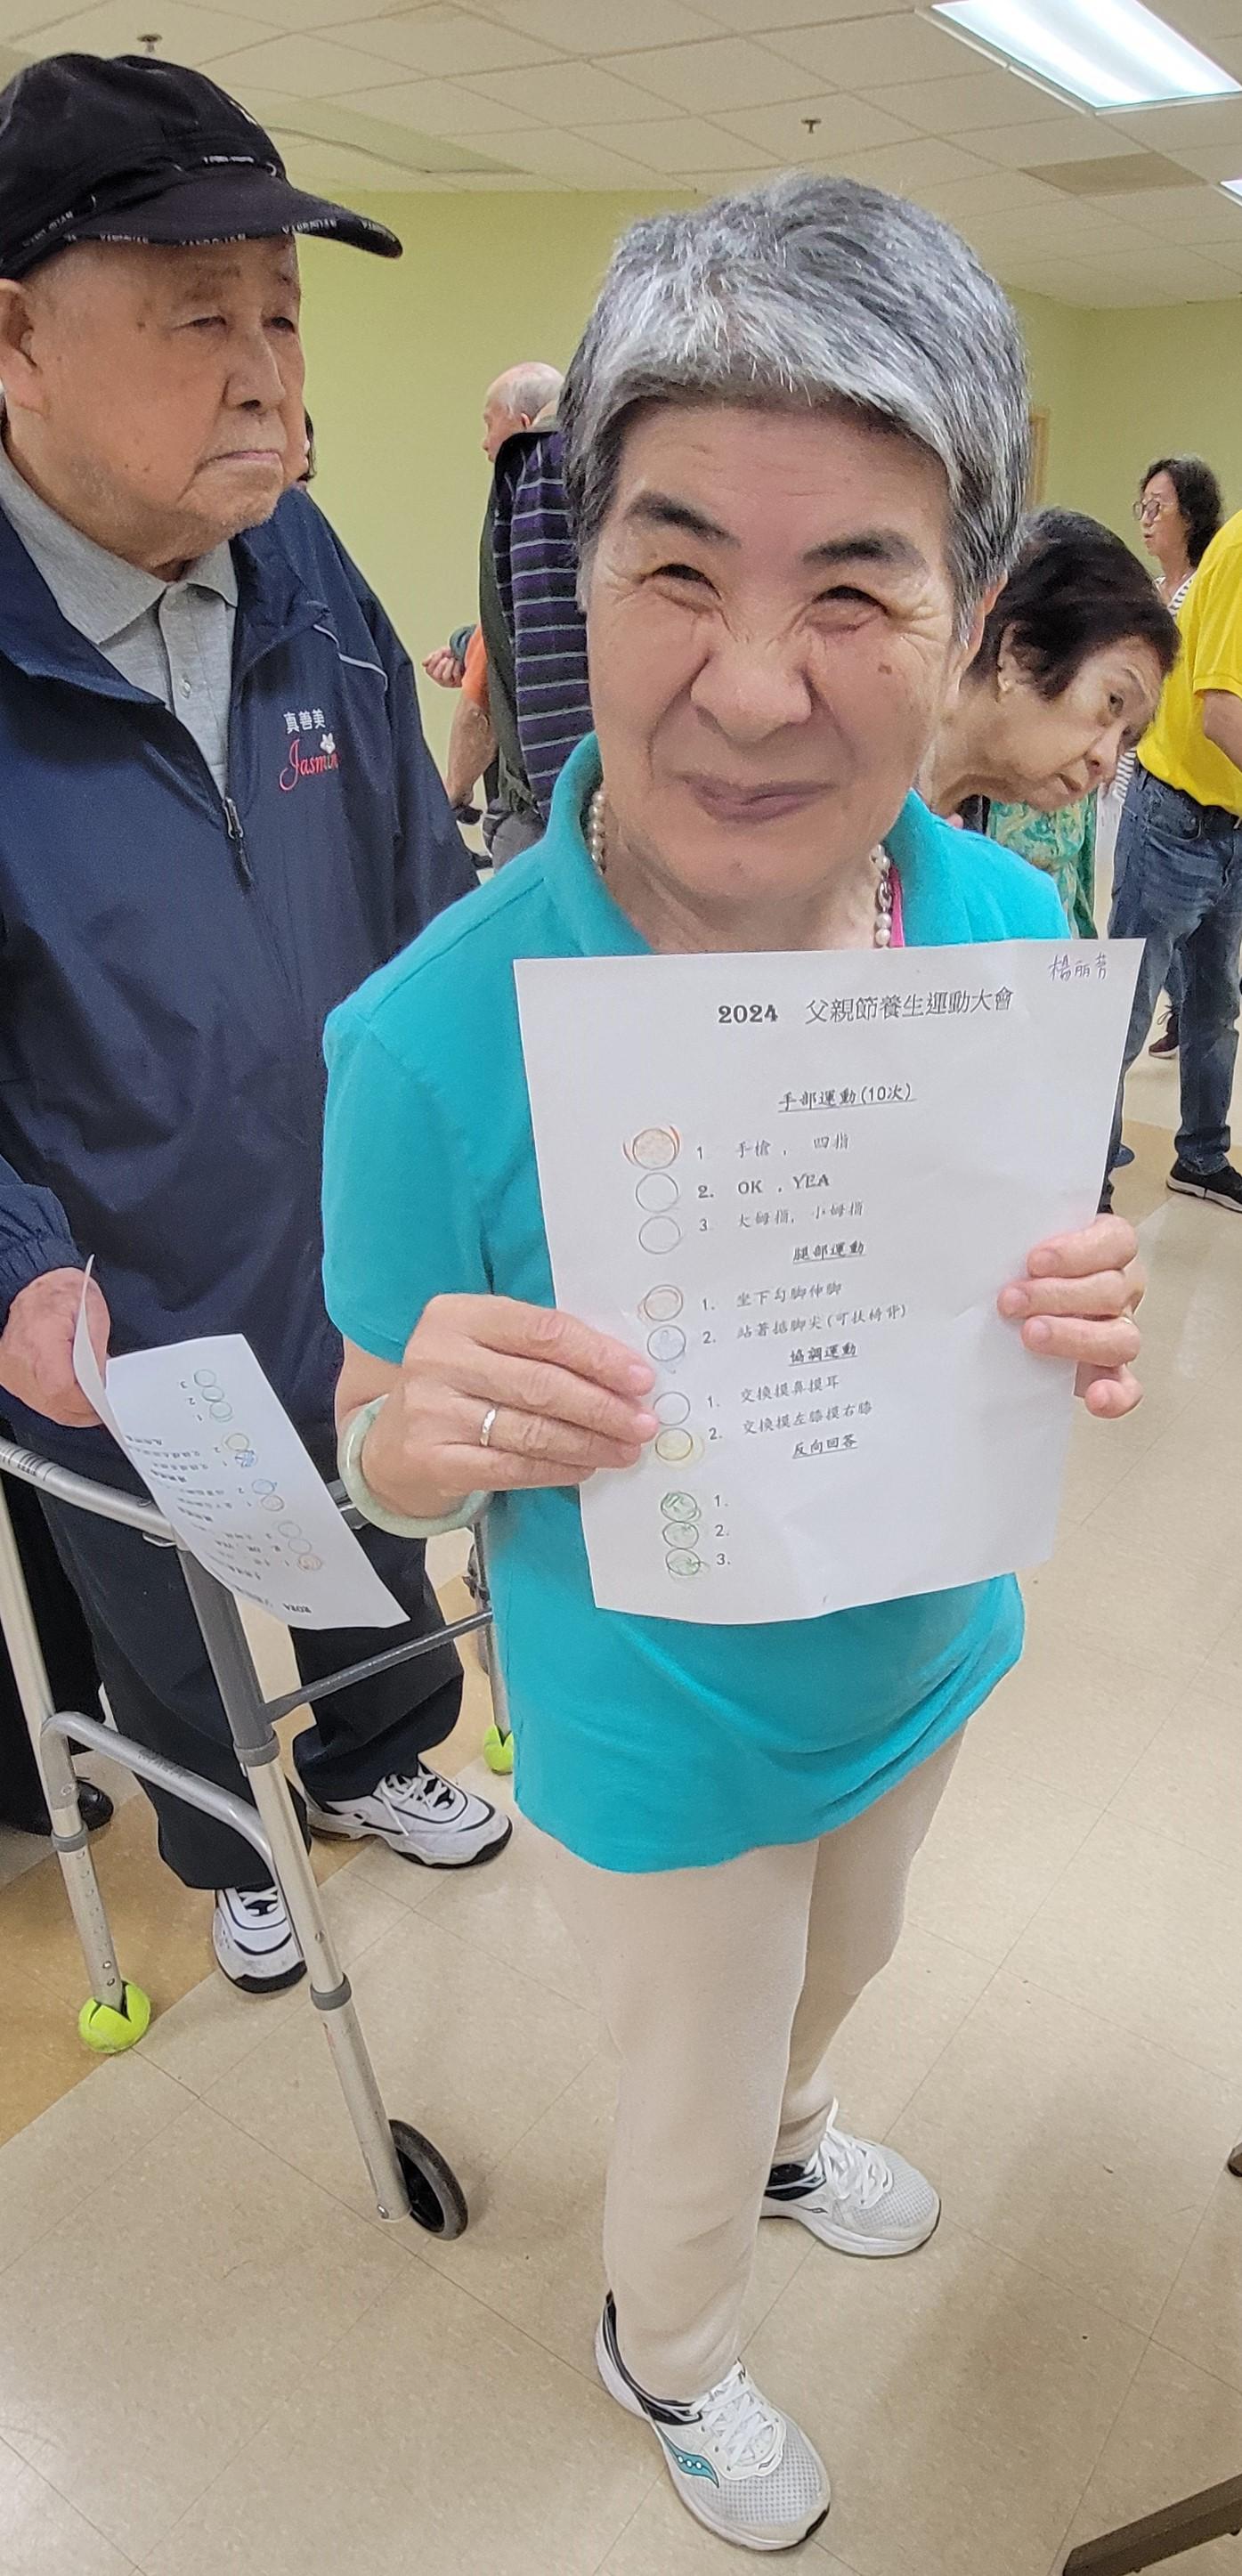 真善美
Jasmin
楊丽芳
2024 父親節養生運動大會
手部運動(10次)
1 手槍， 四指
2. OK ，YEA
3. 大姆指，小姆指
腿部運動
1. 坐下勾脚伸脚
2. 站著掂脚尖(可扶椅背)
協調運動
1. 交換摸鼻摸耳
2. 交換摸左膝摸右膝
反向回答
1.
2.
3.